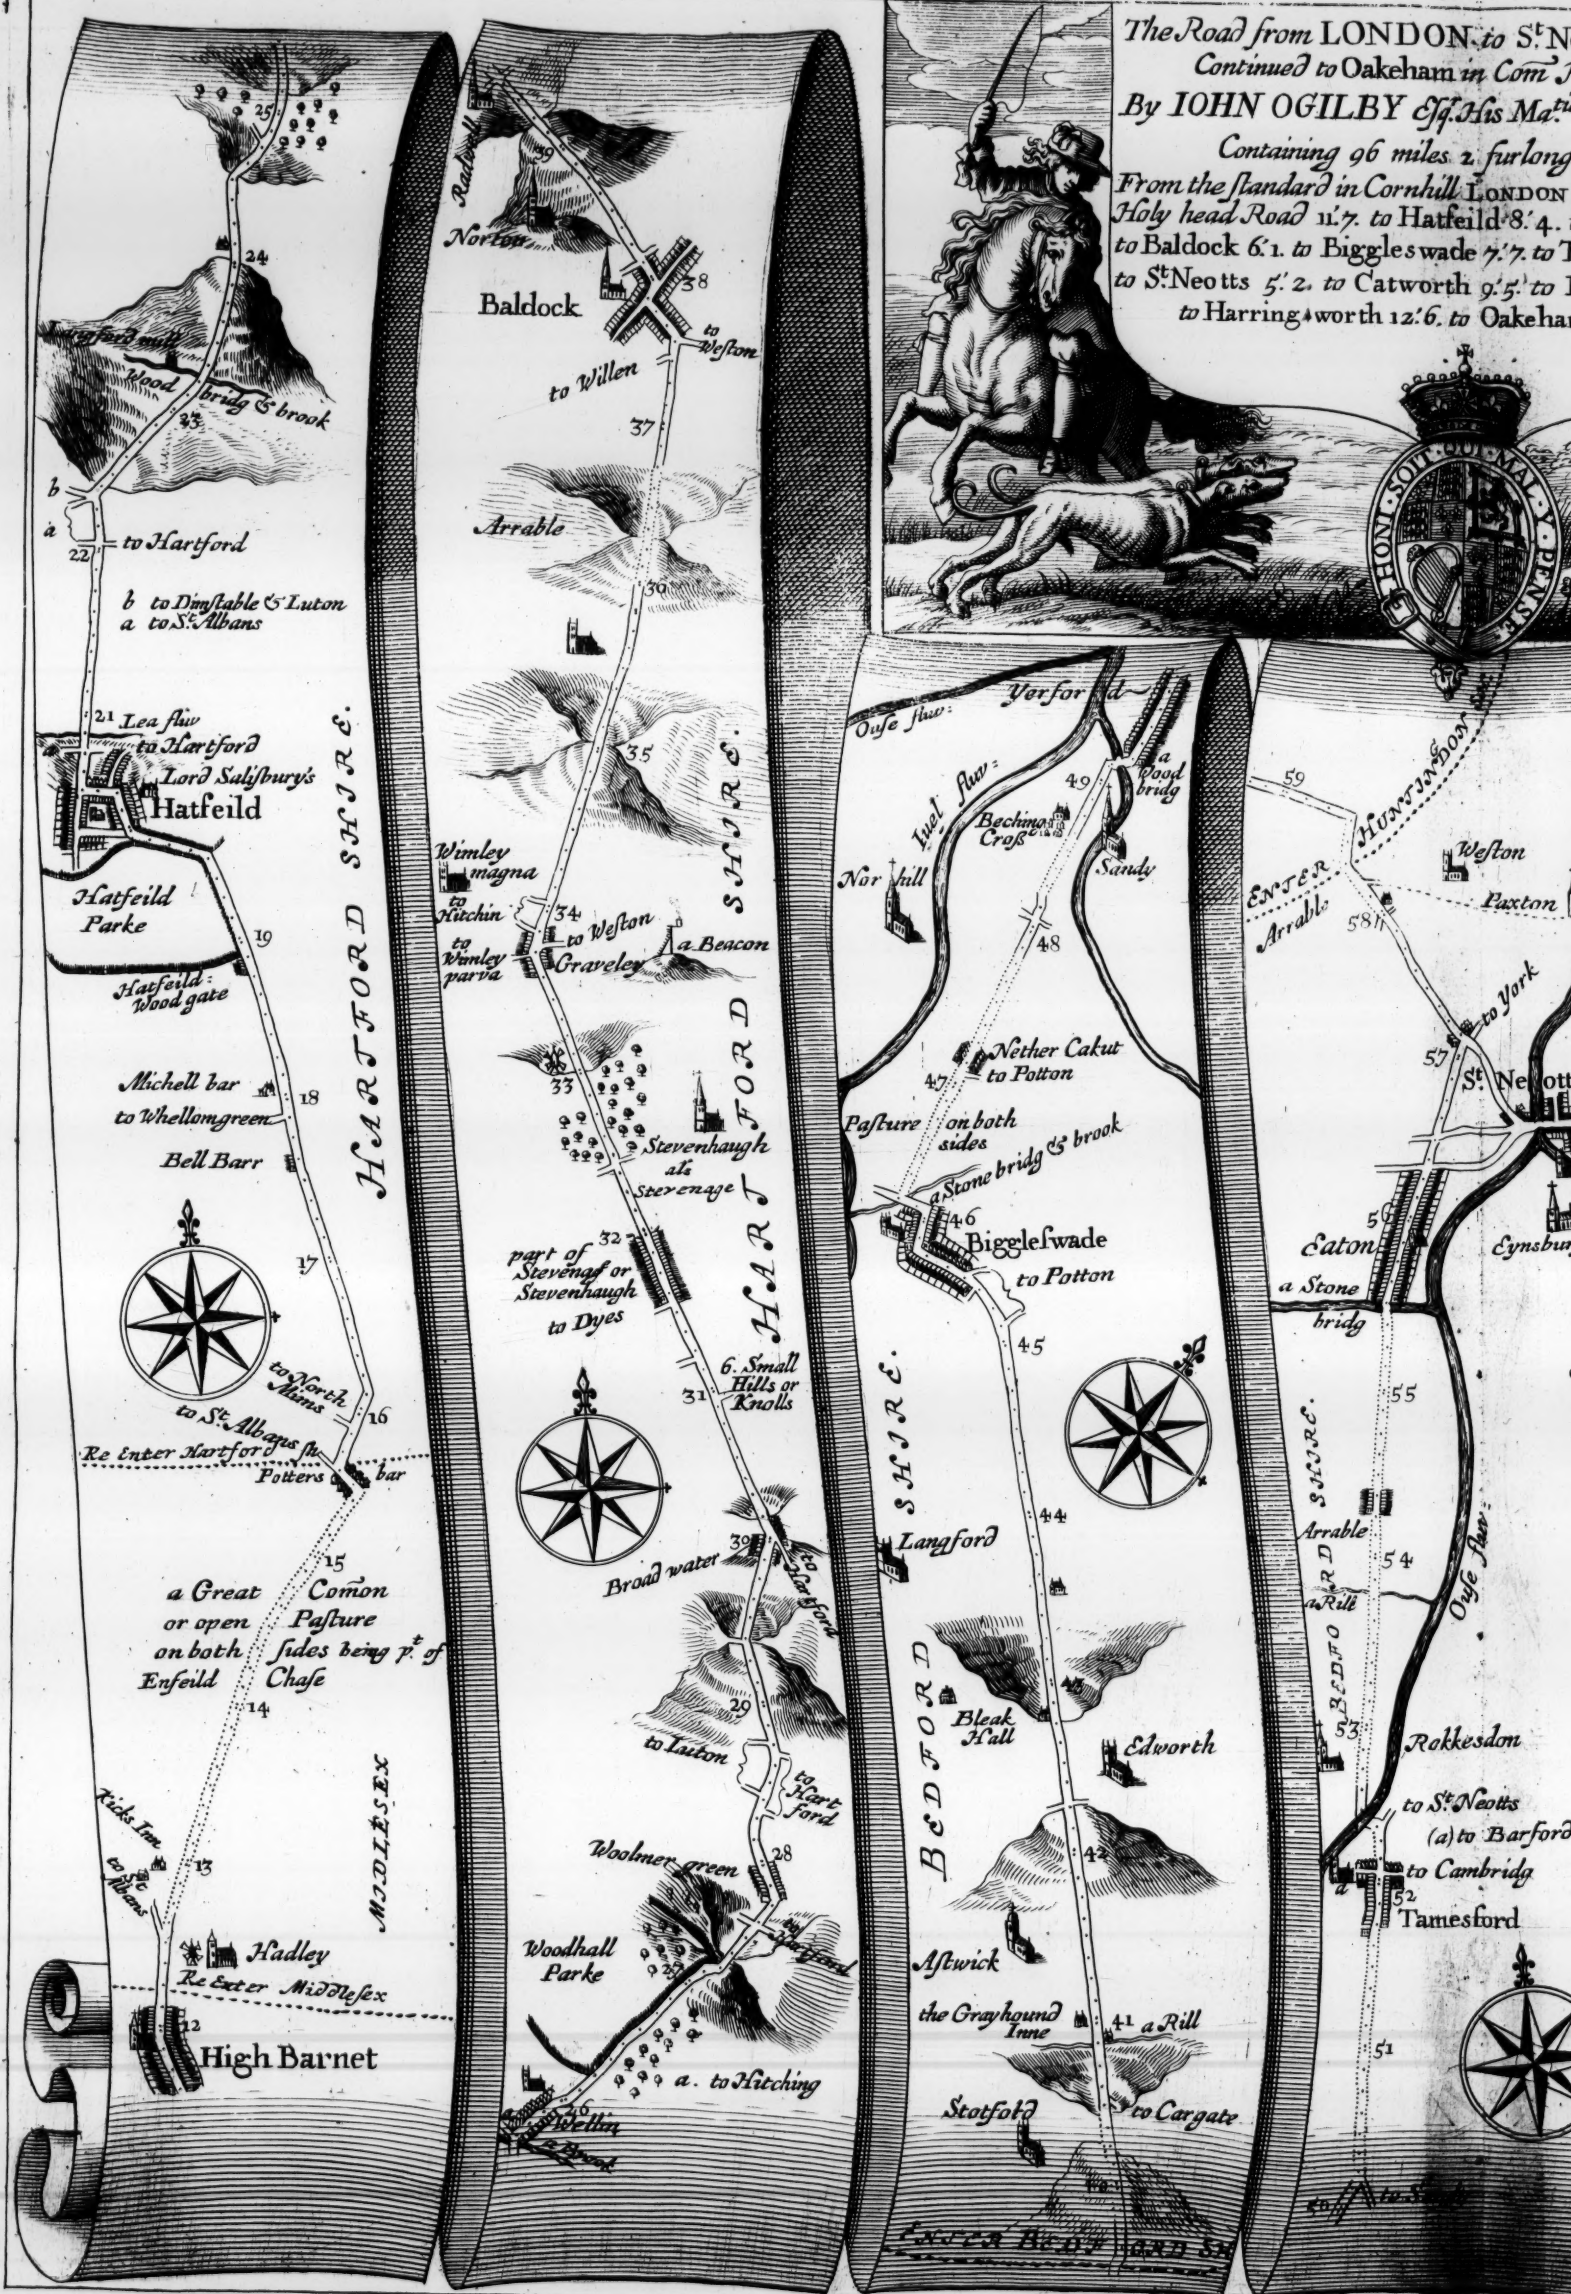 The Road from LONDON to S.t N
Continued to Oakeham in Com
By IOHN OGILBY Esq.r His Ma.tie
Containing 96 miles 2 furlong
From the ſtandard in Cornhill LONDON
Holy head Road 11'.7. to Hatfeild 8'.4.
to Baldock 6'.1. to Biggleswade 7'.7. to T
to S.t Neotts 5'.2. to Catworth 9'.5'. to
to Harringworth 12'.6. to Oakeham
HONI·SOIT·QUI·MAL·Y·PENSE
25
24
Langford mill
Wood bridg & brook
23
b
a
22
to Hartford
b to Dunſtable & Luton
a to S.t Albans
21
Lea fluv
a
to Hartford
Lord Saliſbury's
Hatfeild
HARTFORD SHIRE.
Hatfeild
Parke
19
Hatfeild:
Wood gate
Michell bar
18
to Whellomgreen
Bell Barr
17
to North
Mims
16
to S.t Albans
Re Enter Hartford ſh
Potters bar
15
a Great Com̃on
or open Paſture
on both ſides being p.t of
Enfeild Chaſe
14
MIDLESEX
Kicks Inn
13
to S.t
Albans
Hadley
Re Enter Middleſex
12
High Barnet
Radwell
39
Norton
38
Baldock
to
Weſton
to Willen
37
Arrable
36
35
Wimley
magna
to
Hitchin
34
to Weſton
to
Wimley
parva
Graveley
a Beacon
HARTFORD SHIRE.
33
Stevenhaugh
als
Stevenage
32
part of
Stevenag or
Stevenhaugh
to Dyes
6. Small
Hills or
Knolls
31
30
Broad water
to
Hartford
29
to Luton
to
Hart
ford
28
Woolmer green
to
Hartford
Woodhall
Parke
27
a. to Hitching
a
26
Wellin
a Brook
Yorford
Ouſe fluv:
a
Wood
bridg
49
Iuel fluv:
Beching
Croſs
Sandy
Norhill
48
Nether Cakut
47
to Potton
Paſture on both
sides
a Stone bridg & brook
46
Biggleſwade
to Potton
45
44
Langford
BEDFORD SHIRE.
43
Bleak
Hall
Edworth
42
Aſtwick
the Grayhound
Inne
41
a Rill
Stotfold
to Cargate
40
ENTER BEDFORD SH
59
HUNTINGDON
ENTER
Arrable
58
Weſton
Paxton
to York
57
S.t Neott
56
Eaton
Eynsbur
a Stone
bridg
55
Arrable
54
a Rill
Ouſe fluv:
BEDFORD SHIRE.
53
Rokkesdon
to S.t Neotts
(a) to Barford
to Cambridg
a
52
Tamesford
51
50